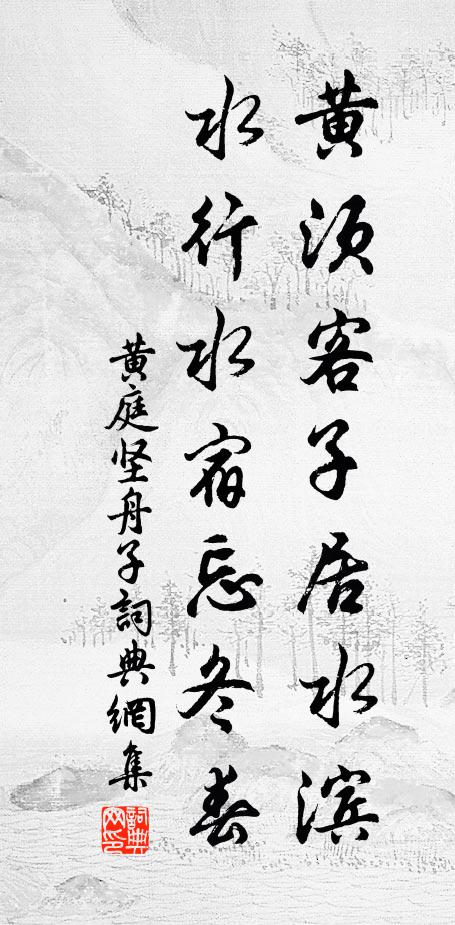 黄须客子居水滨
水行水宿忘冬春
黄庭坚舟子詞典網集
詞典
网印